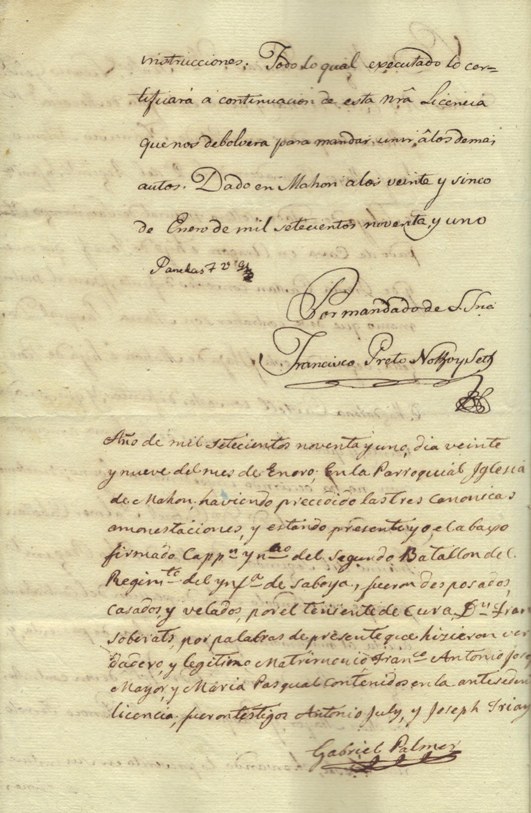 instrucciones; Todo lo qual executado lo cer-
tificará a continuacion de esta nrâ Licencia
que nos debolvera para mandar unir âlos demas
autos. Dado en Mahon a los veinte y sinco
de Enero de mil setecientos noventa y uno
Por mandado de S. Sria
Francisco Preto Not Pco y Seto
Año de mil setecientos noventa y uno, dia veinte
y nueve del mes de Enero; En la Parroquial Iglesia
de Mahon, haviendo precedido las tres canonicas
amonestaciones, y estando presente yo el abaxo
firmado Cappn ynno del Segundo Batallon del
Regimto del ynfa de Saboya, fueron desposados,
casados y velados por el teniente de Cura Dn Fran
Seberats, por palabras de presente que hizieron ver
dadero y legitimo Matrimonio Franco Antonio Jose
Mayor, y Maria Pasqual contenidos en la anteseden
licencia, fueron testigos Antonio July, y Joseph Triay
Gabriel Palmer